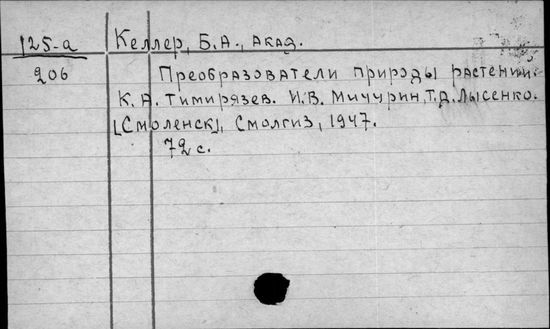 125-а
Келлер, Б.А., акад.
206
Преобразователи природы растений.
К.А. Тимирязев. И.В. Мичурин, Т.Д. Лысенко.
[Смоленск], Смолгиз, 1947.
72 с.